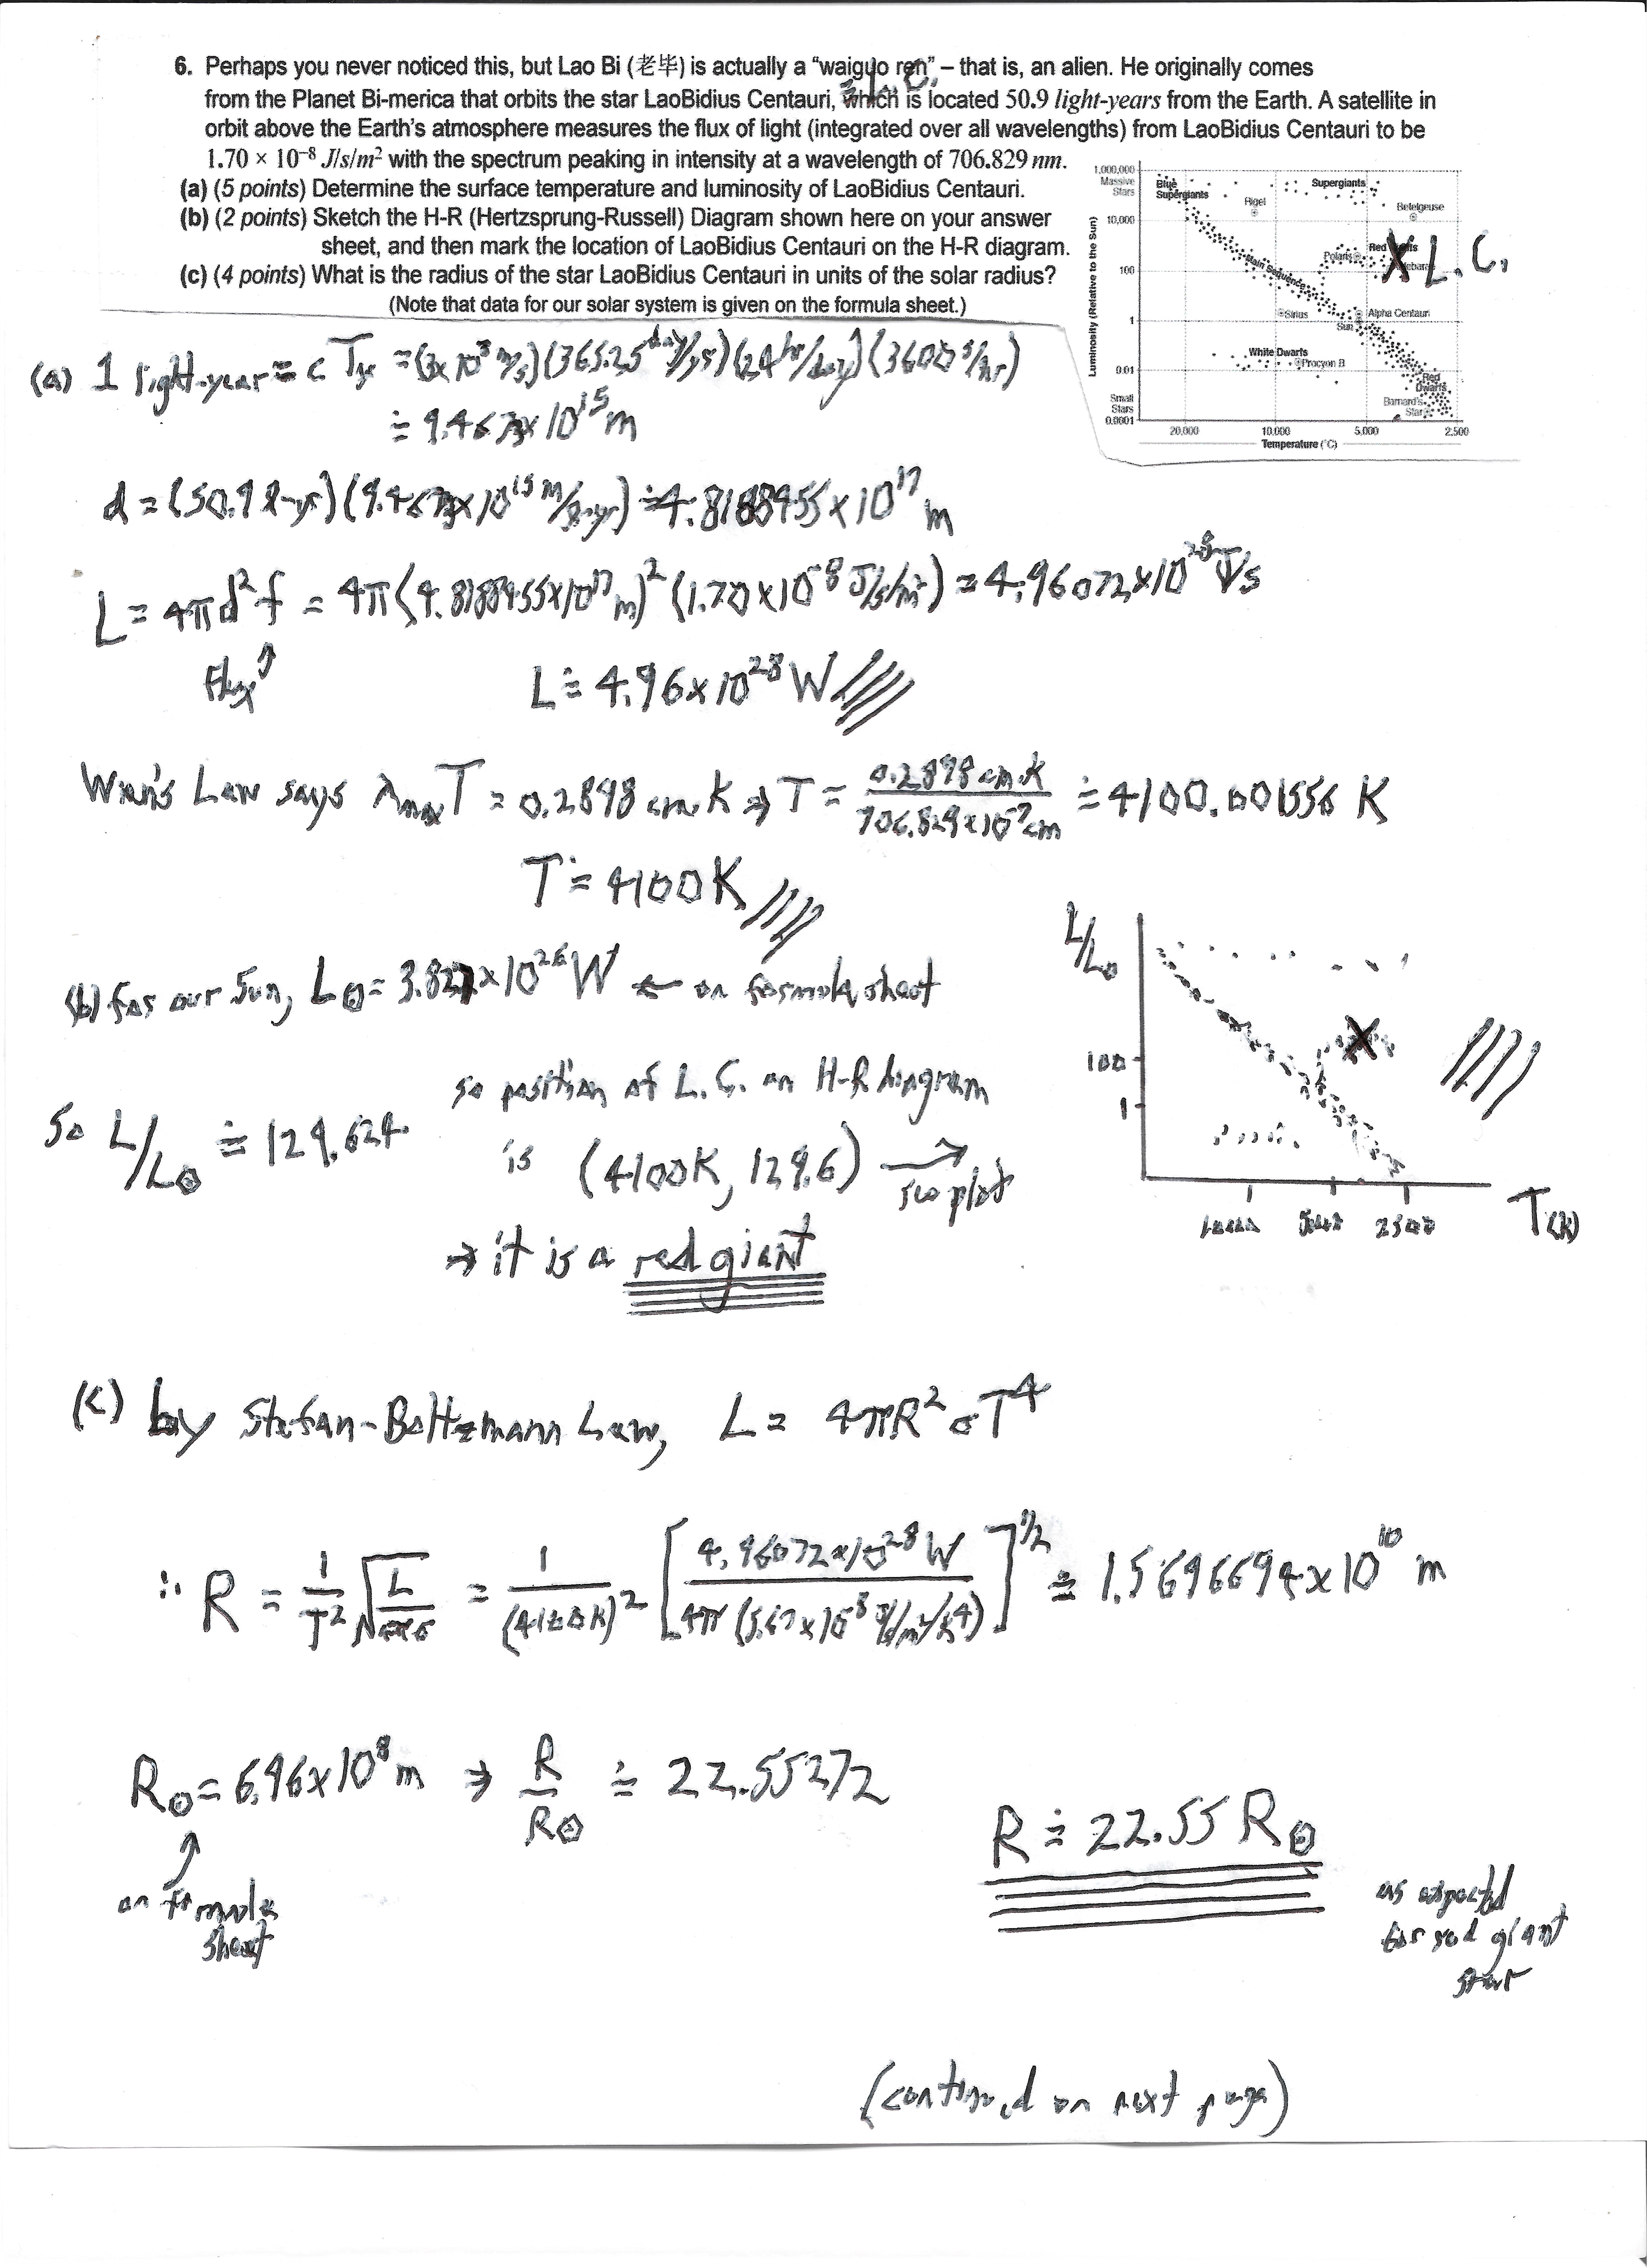 6. Perhaps you never noticed this, but Lao Bi (老毕) is actually a “waiguo ren” – that is, an alien. He originally comes
≡ L.C.
from the Planet Bi-merica that orbits the star LaoBidius Centauri, which is located 50.9 light-years from the Earth. A satellite in
orbit above the Earth’s atmosphere measures the flux of light (integrated over all wavelengths) from LaoBidius Centauri to be
1.70 × 10⁻⁸ J/s/m² with the spectrum peaking in intensity at a wavelength of 706.829 nm.
(a) (5 points) Determine the surface temperature and luminosity of LaoBidius Centauri.
(b) (2 points) Sketch the H-R (Hertzsprung-Russell) Diagram shown here on your answer
sheet, and then mark the location of LaoBidius Centauri on the H-R diagram.
(c) (4 points) What is the radius of the star LaoBidius Centauri in units of the solar radius?
(Note that data for our solar system is given on the formula sheet.)
Luminosity (Relative to the Sun)
1,000,000
Massive
Stars
10,000
100
1
0.01
Small
Stars
0.0001
Blue
Supergiants
Supergiants
Rigel
Betelgeuse
Polaris
Red
X L.C.
Main Sequence
Sirius
Alpha Centauri
Sun
White Dwarfs
Procyon B
Red
Dwarfs
Barnard's
Star
20,000 10,000 5,000 2,500
Temperature (°C)
(a) 1 light-year = c T_yr = (3x10⁸ m/s)(365.25 day/yr)(24 hr/day)(3600 s/hr)
≐ 9.4673x10¹⁵ m
d = (50.9 l-yr)(9.4673x10¹⁵ m/l-yr) ≐ 4.8188955x10¹⁷ m
L = 4πd²f = 4π(4.8188955x10¹⁷ m)²(1.70x10⁻⁸ J/s/m²) = 4.96072x10²⁸ J/s
flux
L ≐ 4.96x10²⁸ W
Wien's Law says λmax T = 0.2898 cm·K ⇒ T = 0.2898 cm·K / 706.829x10⁻⁷ cm ≐ 4100.001556 K
T ≐ 4100K
(b) for our Sun, L⊙ = 3.827x10²⁶ W ← on formula sheet
So L/L⊙ ≐ 129.624
so position of L.C. on H-R diagram
is (4100K, 129.6) → see plot
⇒ it is a red giant
L/L⊙
100
1
X
10000 5000 2500
T(K)
(c) by Stefan-Boltzmann Law, L = 4πR²σT⁴
∴ R = 1/T² √(L/4πσ) = 1/(4100K)² [4.96072x10²⁸ W / 4π(5.67x10⁻⁸ J/s/m²/K⁴)]^1/2 ≐ 1.5696694x10¹⁰ m
R⊙ = 6.96x10⁸ m ⇒ R/R⊙ ≐ 22.55272
on formula
sheet
R ≐ 22.55 R⊙
as expected
for red giant
star
(continued on next page)